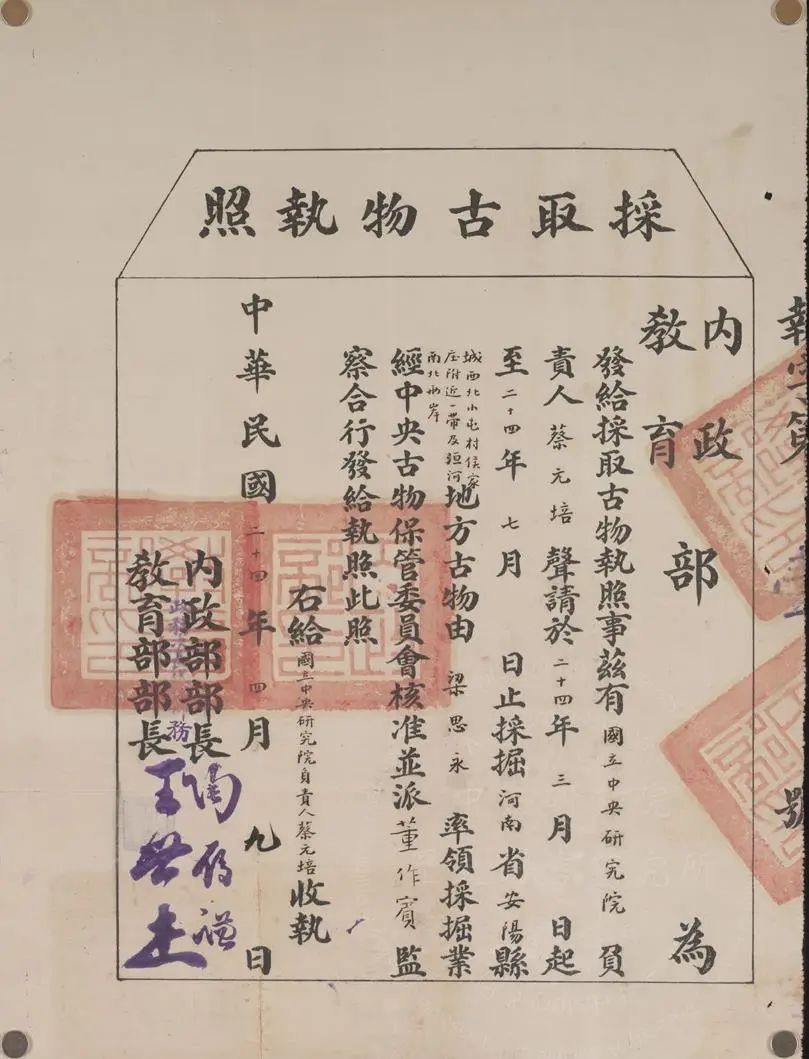 採取古物執照
執字第 號
內政
教育
部 為
發給採取古物執照事茲有國立中央研究院負
責人蔡元培聲請於二十四年三月 日起
至二十四年七月 日止採掘河南省安陽縣
城西北小屯村侯家
庄附近一帶及洹河
南北兩岸
地方古物由梁思永率領採掘業
經中央古物保管委員會核准並派董作賓監
察合行發給執照此照
右給國立中央研究院負責人蔡元培收執
中華民國二十四年四月九日
內政部部長
教育部部長
王世杰